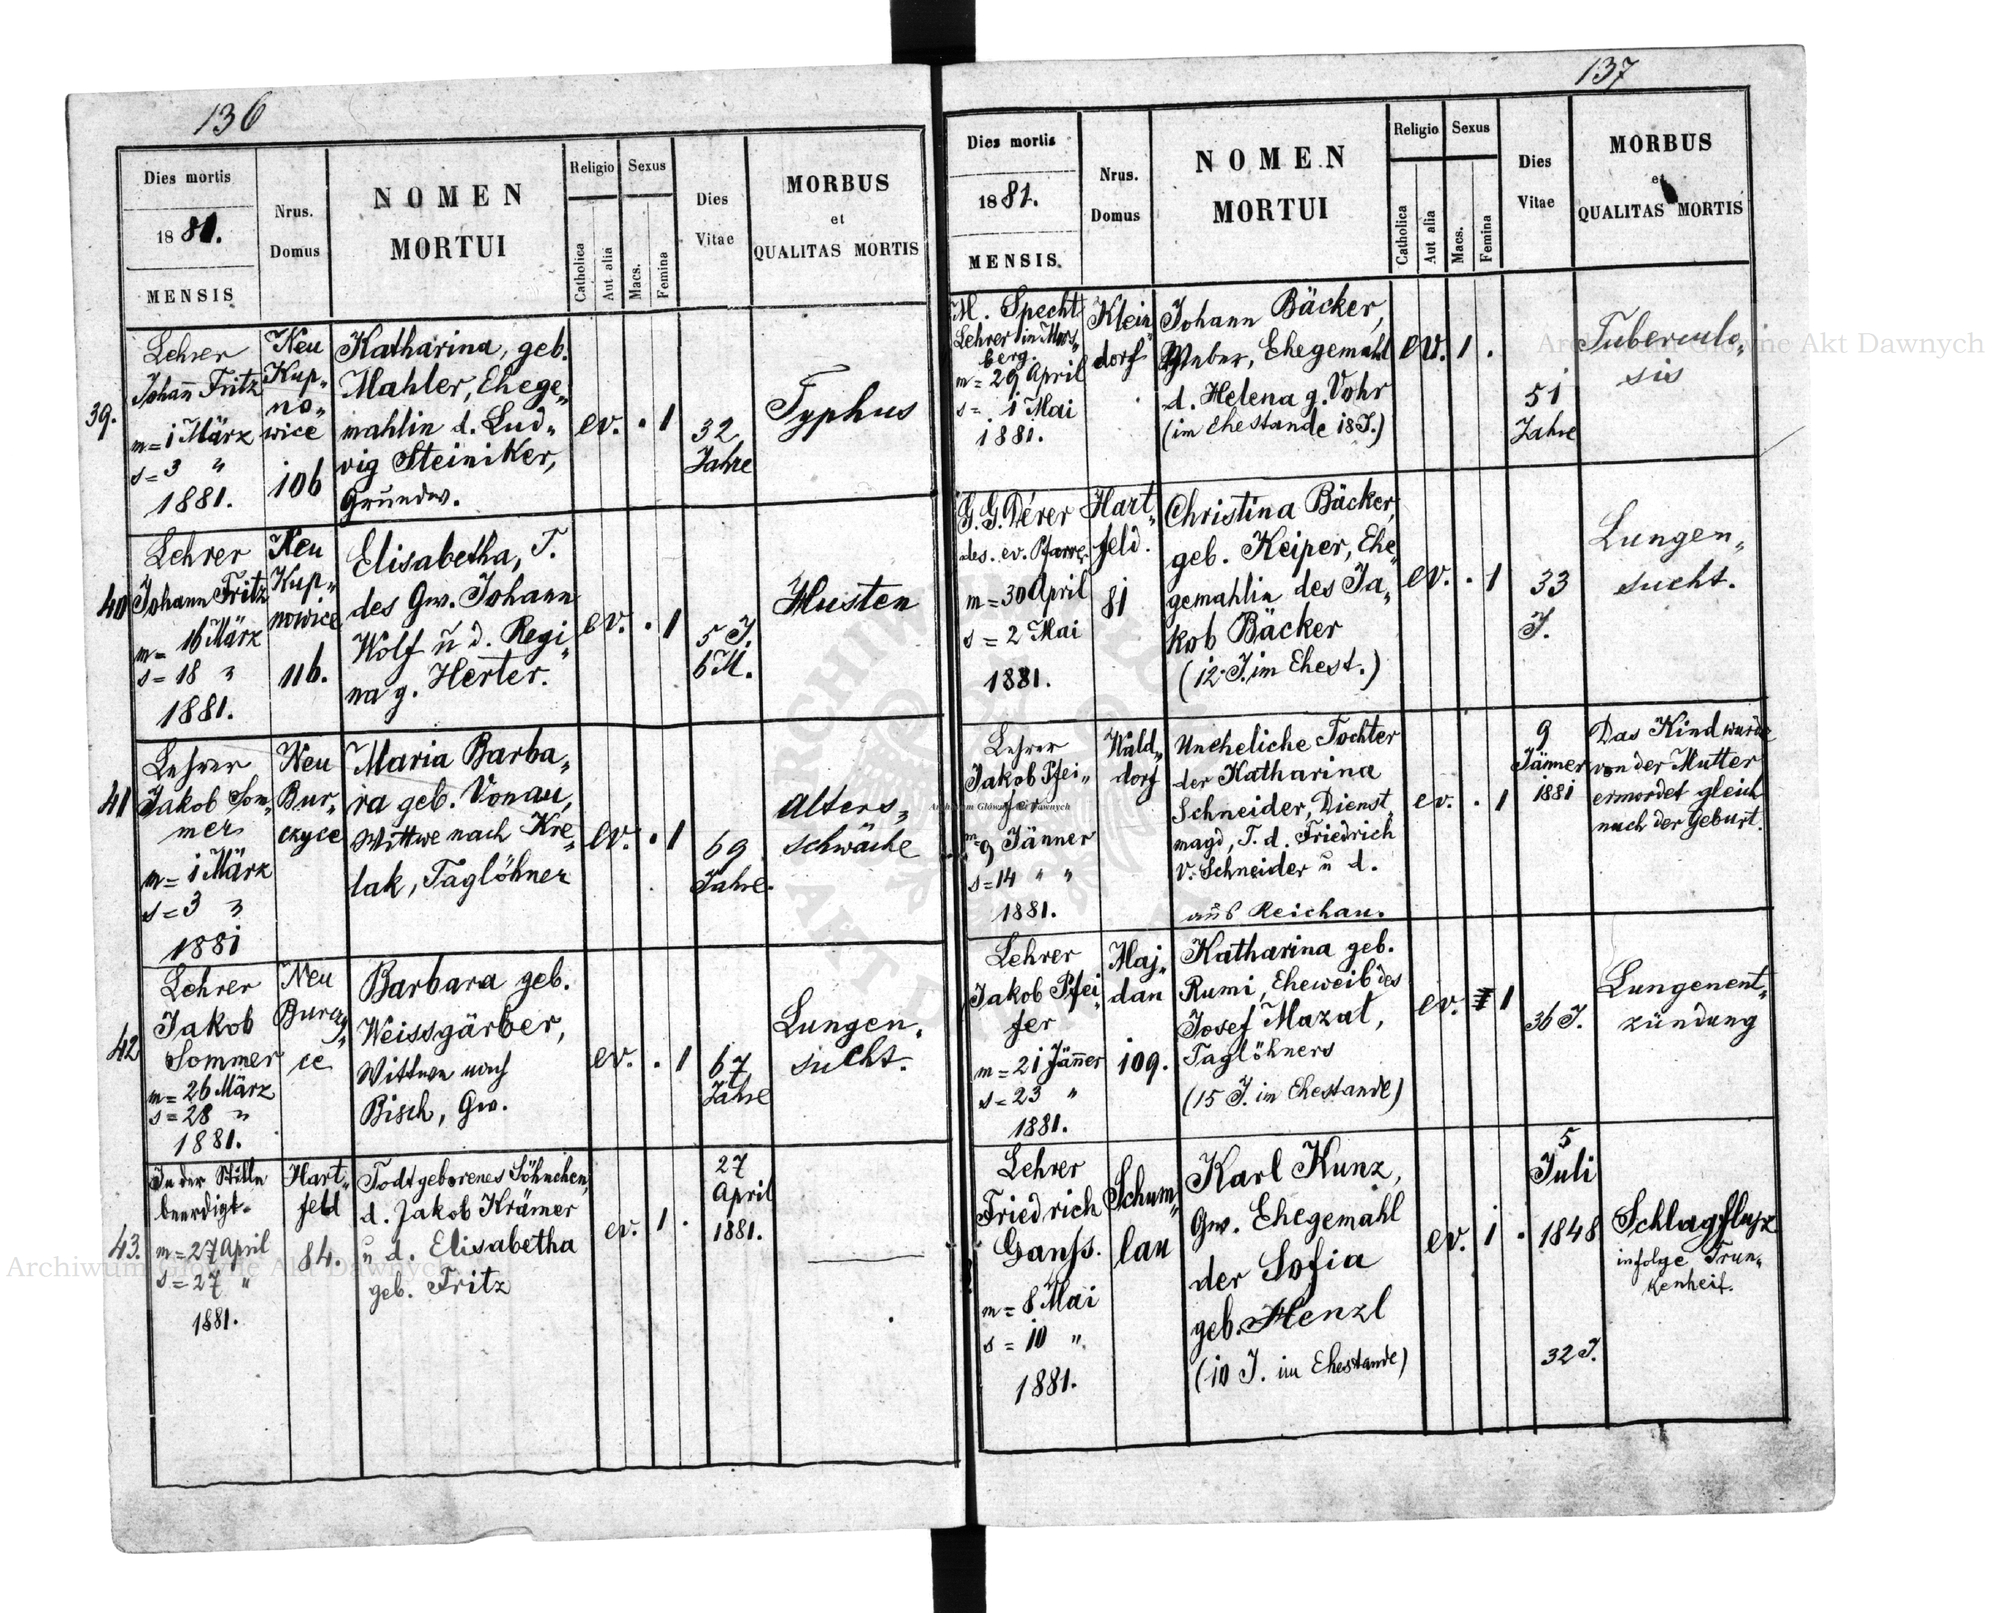 136
Dies mortis
1881.
MENSIS
Nrus.
Domus
NOMEN
MORTUI
Religio
Catholica
Aut alia
Sexus
Macs.
Femina
Dies
Vitae
MORBUS
et
QUALITAS MORTIS
39.
Lehrer
Johañ Fritz
m = 1 März
s = 3 "
1881.
Neu
Kup„
no„
wice
106
Katharina, geb.
Mahler, Ehege„
mahlin d. Lud„
vig Steiniker,
Grundw.
ev. . 1
32
Jahre
Typhus
40
Lehrer
Johann Fritz
m = 16 März
s = 18 "
1881.
Neu
Kup„
nowice
116.
Elisabetha, T.
des Gw. Johann
Wolf u d. Regi„
na g. Herter.
ev. . 1
5 J.
6 M.
Husten
41
Lehrer
Jakob Som„
mer
m = 1 März
s = 3 "
1881
Neu
Bur„
czyce
Maria Barba„
ra geb. Vonau,
Wittwe nach Kre„
lak, Taglöhner
ev. . 1
69
Jahre.
Alters„
schwäche
42
Lehrer
Jakob
Sommer
m = 26 März
s = 28 "
1881.
Neu
Burczy„
ce
Barbara geb.
Weissgärber,
Wittwe nach
Bisch, Gw.
ev. . 1
67
Jahre
Lungen„
sucht.
43.
In der Stille
beerdigt.
m = 27 April
s = 27 "
1881.
Hart„
feld
84.
Todtgeborenes Söhnchen,
d. Jakob Krämer
u d. Elisabetha
geb. Fritz
ev. 1 .
27
April
1881.
137
Dies mortis
1881.
MENSIS
Nrus.
Domus
NOMEN
MORTUI
Religio
Catholica
Aut alia
Sexus
Macs.
Femina
Dies
Vitae
MORBUS
et
QUALITAS MORTIS
M. Specht
Lehrer in Mos„
berg.
m = 29 April
s = 1 Mai
1881.
Klein„
dorf
Johann Bäcker,
Weber, Ehegemahl
d. Helena g. Vohr
(im Ehestande 18 J.)
ev. 1 .
51
Jahre
Tuberculo„
sis
G. G. Dérer
des. ev. Pfarrer
m = 30 April
s = 2 Mai
1881.
Hart„
feld.
81
Christina Bäcker,
geb. Keiper, Ehe„
gemahlin des Ja„
kob Bäcker
(12 J. im Ehest.)
ev. . 1
33
J.
Lungen„
sucht.
Lehrer
Jakob Pfei„
fer
m = 9 Jänner
s = 14 " "
1881.
Wald„
dorf
Uneheliche Tochter
der Katharina
Schneider, Dienst„
magd, T. d. Friedrich
v. Schneider u d.
aus Reichau.
ev. . 1
9
Jänner
1881
Das Kind wurde
von der Mutter
ermordet gleich
nach der Geburt.
Lehrer
Jakob Pfei„
fer
m = 21 Jäñer
s = 23 "
1881.
Maj„
dan
109.
Katharina geb.
Rumi, Eheweib des
Josef Mazat,
Taglöhners
(15 J. im Ehestande)
ev. 1
36 J.
Lungenent„
zündung
Lehrer
Friedrich
Ganss.
m = 8 Mai
s = 10 "
1881.
Schum„
lau
Karl Kunz,
Gw. Ehegemahl
der Sofia
geb. Henzl
(10 J. im Ehestande)
ev. 1 .
5
Juli
1848
32 J.
Schlagfluss
infolge Trun„
kenheit.
Archiwum Główne Akt Dawnych
Archiwum Główne Akt Dawnych
Archiwum Główne Akt Dawnych